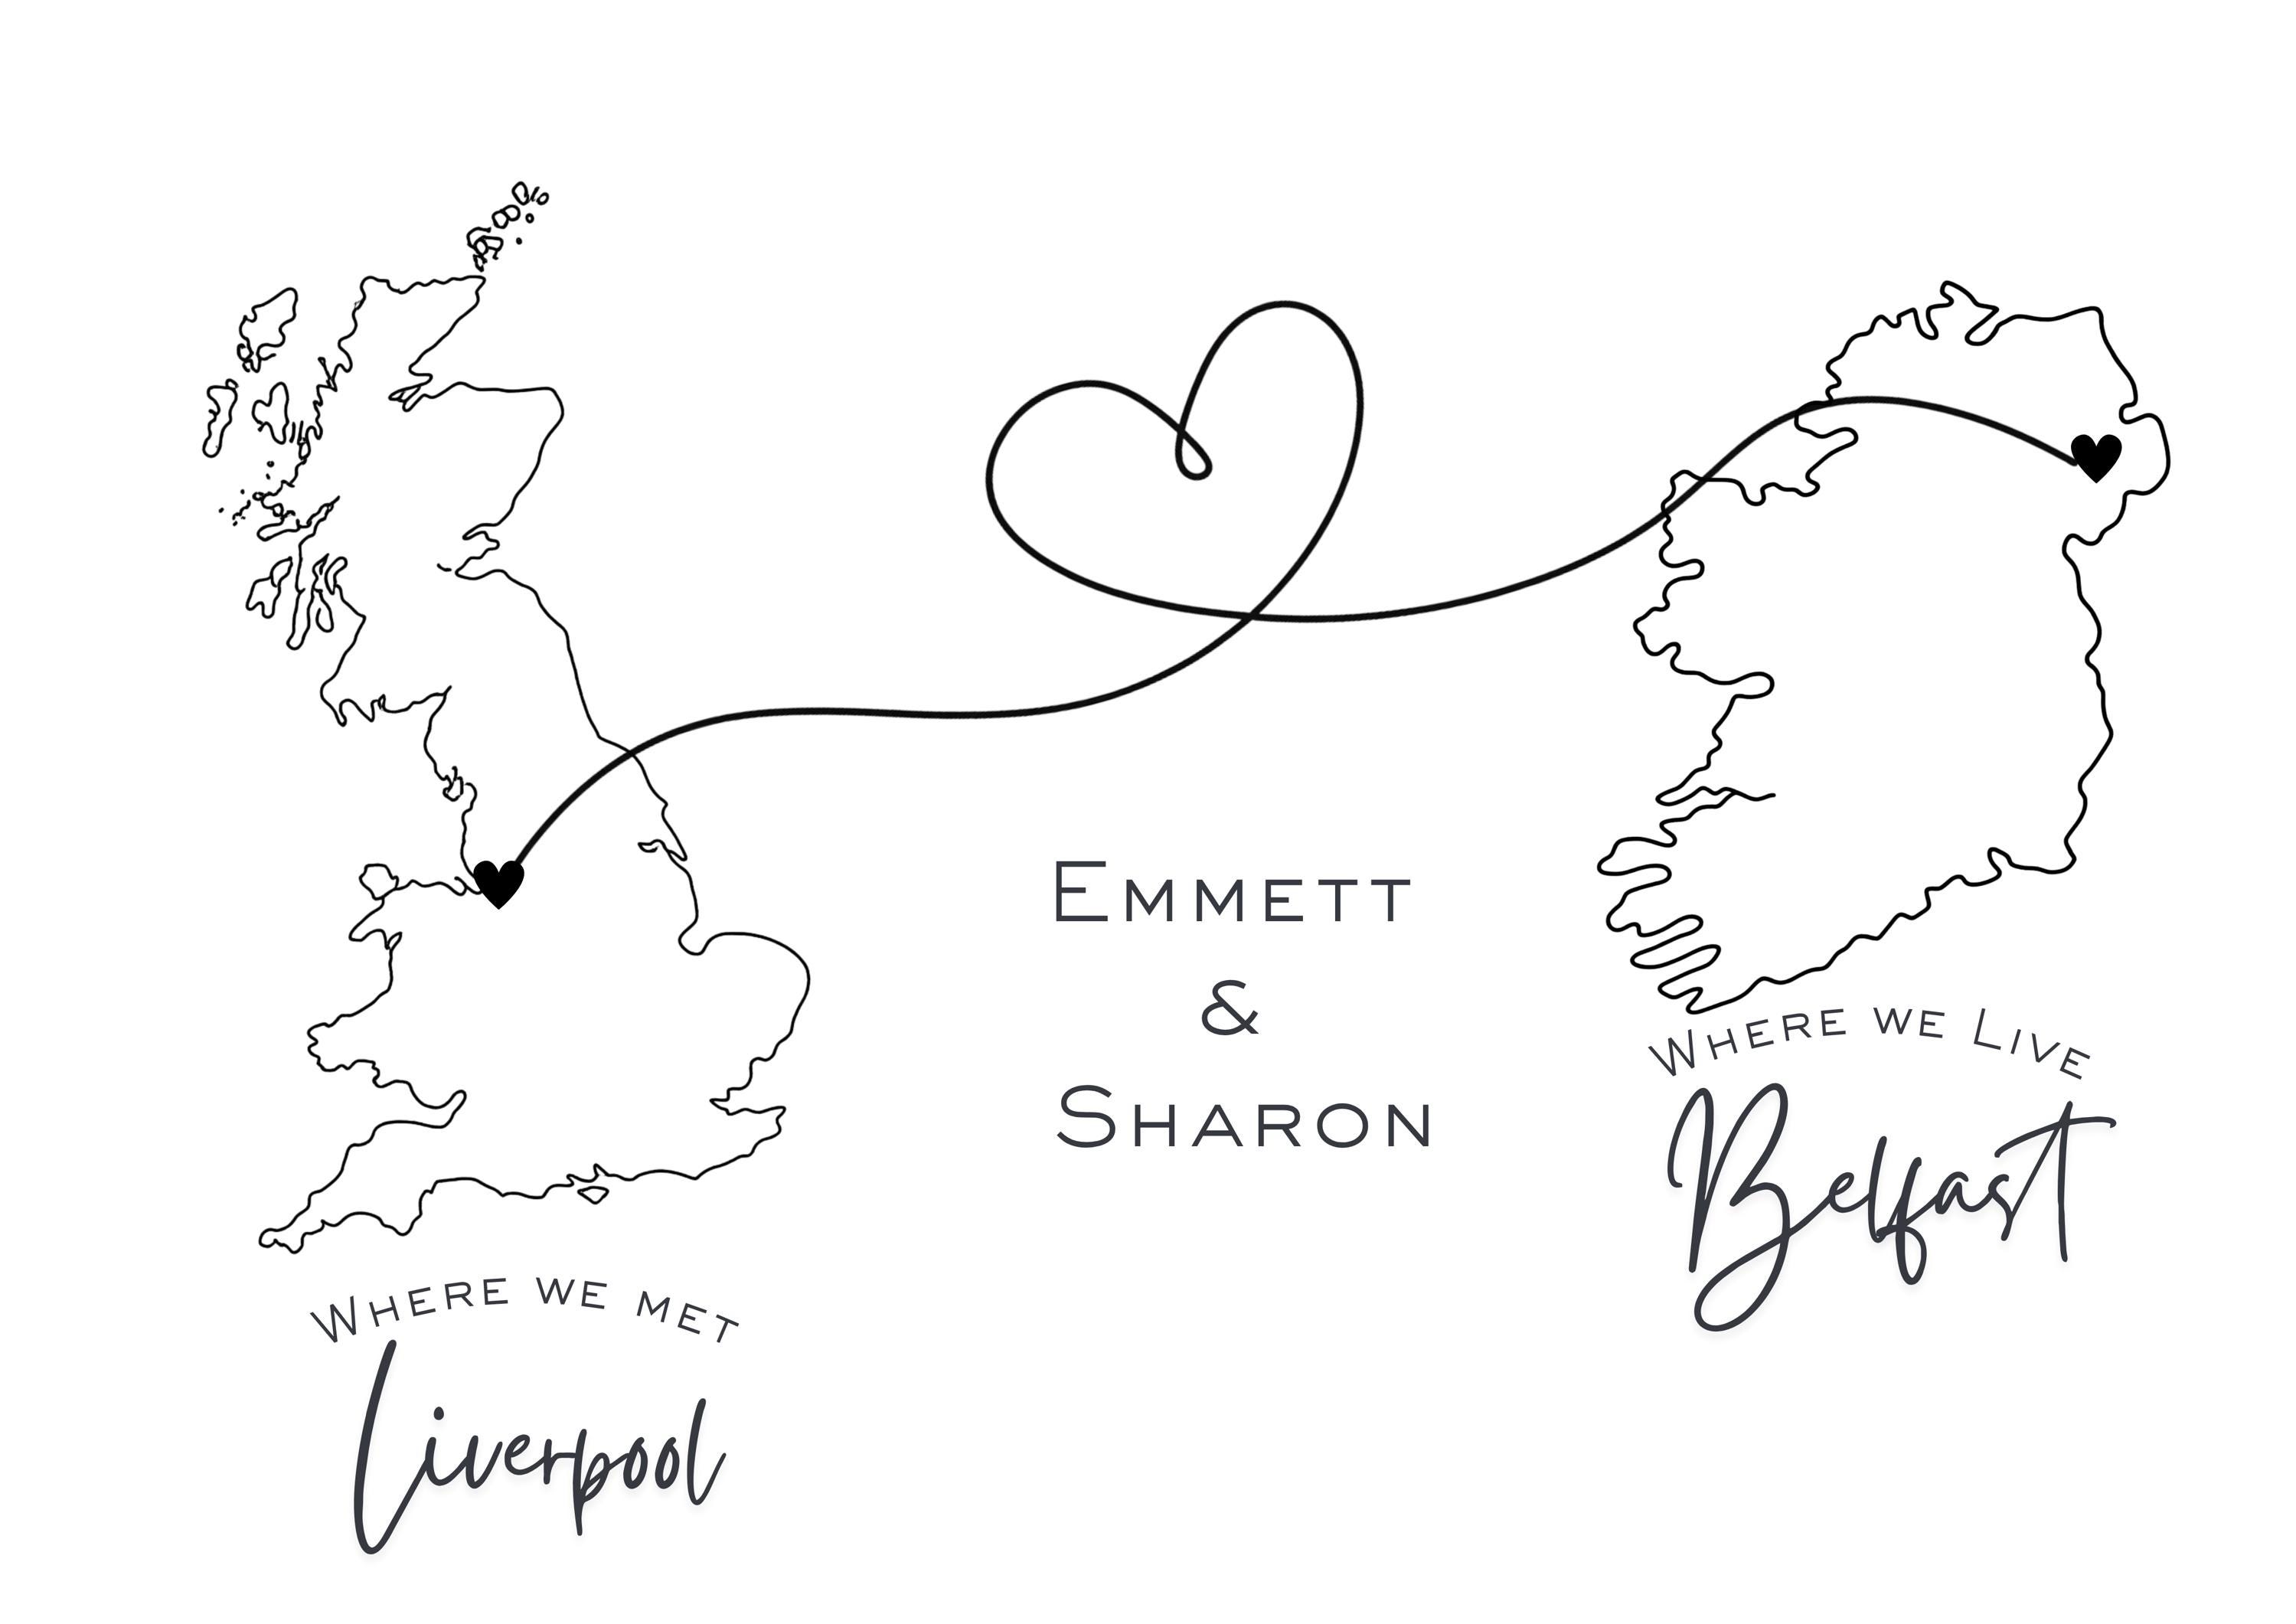 Emmett
&
Sharon
Where we met
Liverpool
Where we Live
Belfast